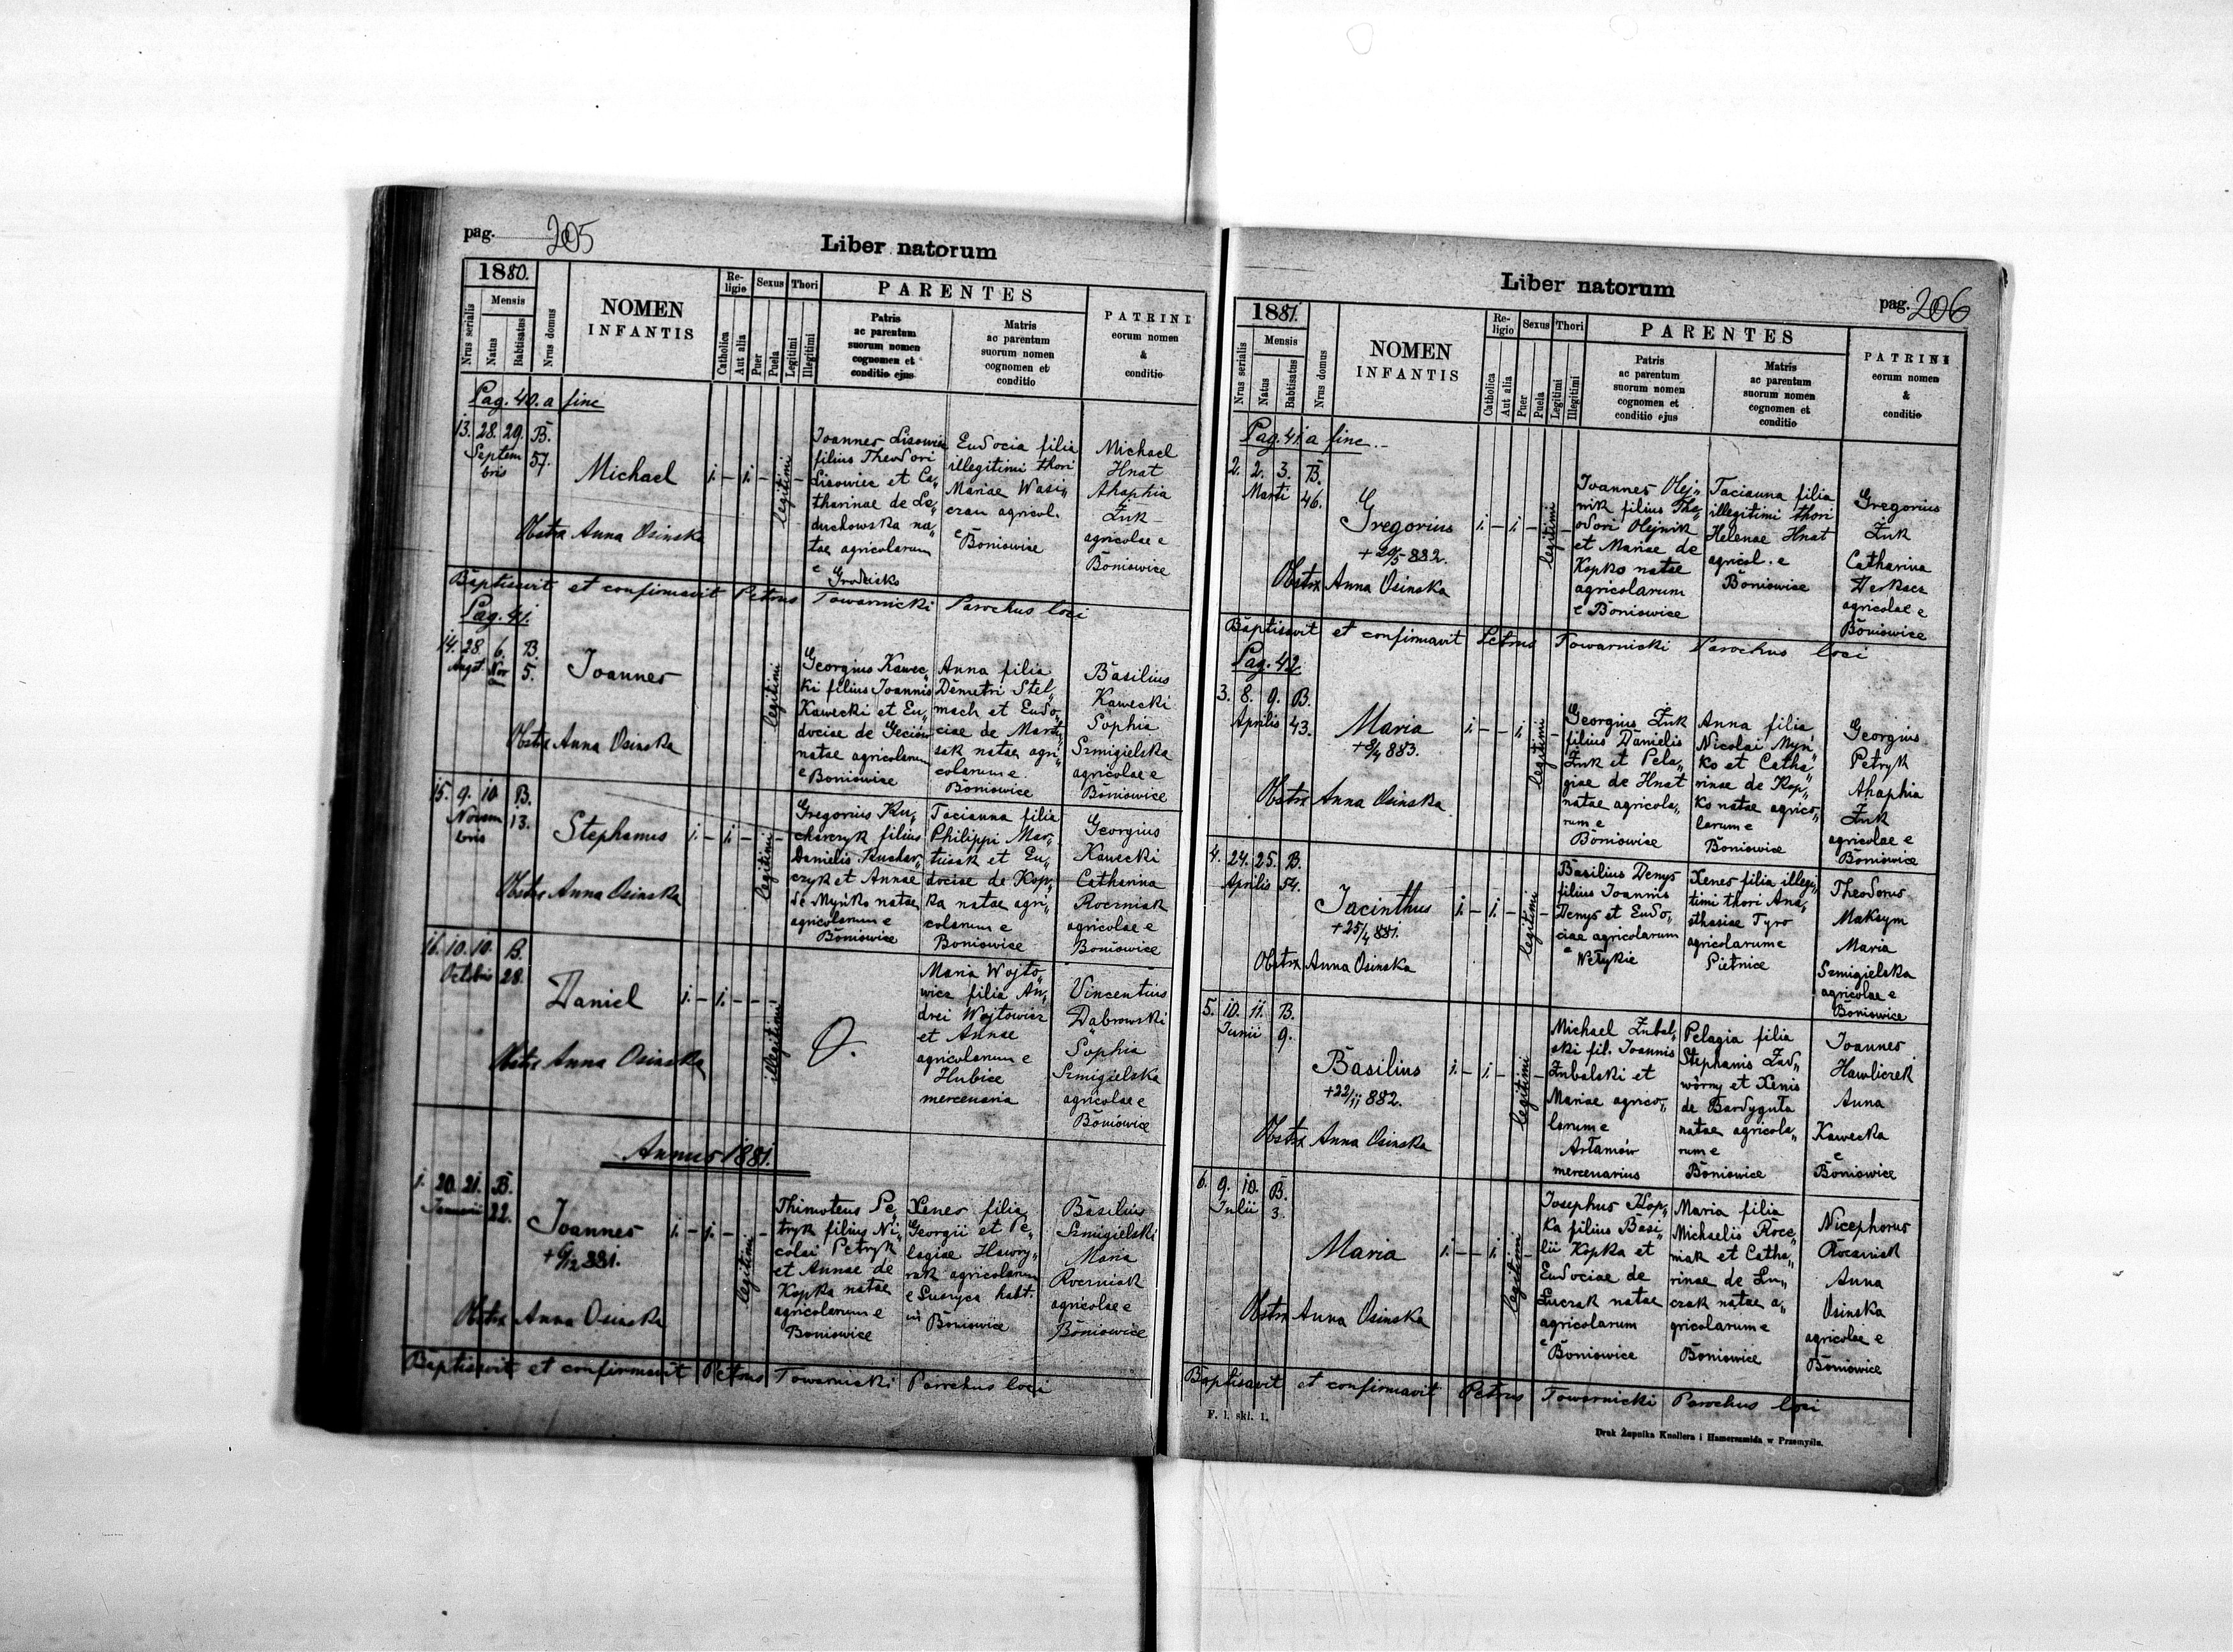 pag. 205
Liber natorum
1880.
Nrus serialis
Mensis
Natus
Babtisatus
Nrus domus
NOMEN
INFANTIS
Re-
ligio
Catholica
Aut alia
Sexus
Puer
Puela
Thori
Legitimi
Illegitimi
PARENTES
Patris
ac parentum
suorum nomen
cognomen et
conditio ejus
Matris
ac parentum
suorum nomen
cognomen et
conditio
PATRINI
eorum nomen
&
conditio
Pag. 40. a fine
13. 28. 29. B.
Septem
bris
57.
Michael
i. – i. –
legitimi
Obstx Anna Osinska
Joannes Lisowiec
filius Theodori
Lisowiec et Ca„
tharinae de Le„
duchowska na„
tae agricolarum
e Grodzisko
Eudocia filia
illegitimi thori
Mariae Wasi„
czau agricol.
e Boniowice
Michael
Hnat
Ahaphia
Żuk
agricolae e
Boniowice
Baptisavit et confirmavit Petrus Towarnicki Parochus loci
Pag. 41.
14. 28. 6. B.
Augst. Nov 5.
Joannes
legitimi
Obstx Anna Osinska
Georgius Kawec„
ki filius Joannis
Kawecki et Eu„
dociae de Geciów
natae agricolarum
e Boniowice
Anna filia
Demetri Stel„
mach et Eudo„
ciae de Mart„
sak natae agri„
colarum e
Boniowice
Basilius
Kawecki
Sophia
Szmigielska
agricolae e
Boniowice
15. 9. 10. B.
Novem
bris
13.
Stephanus
i. – i. –
legitimi
Obstx Anna Osinska
Gregorius Ku„
charczyk filius
Danielis Kuchar„
czyk et Annae
de Myńko natae
agricolarum e
Boniowice
Tacianna filia
Philippi Mar„
tusak et Eu„
dociae de Kop„
ka natae agri„
colarum e
Boniowice
Georgius
Kawecki
Catharina
Roczniak
agricolae e
Boniowice
16. 10. 10. B.
Octobris 28.
Daniel
i. – i. – –
illegitimi
Obstx Anna Osinska
O.
Maria Wojto„
wicz filia An„
drei Wojtowicz
et Annae
agricolarum e
Hubice
mercenaria
Vincentius
Dąbrowski
Sophia
Szmigielska
agricolae e
Boniowice
Annus 1881.
1. 20. 21. B.
Januarii 22.
Joannes
+ 6/12 881.
i. – i. – –
legitimi
Obstx Anna Osinska
Thimoteus Pe„
tryk filius Ni„
colai Petryk
et Annae de
Kopka natae
agricolarum e
Boniowice
Xenes filia
Georgii et Pe„
lagiae Hawry„
rak agricolarum
habt.
in Boniowice
Basilius
Szmigielski
Maria
Roczniak
agricolae e
Boniowice
Baptisavit et confirmavit Petrus Towarnicki Parochus loci
Liber natorum
pag. 206
1881.
Nrus serialis
Mensis
Natus
Babtisatus
Nrus domus
NOMEN
INFANTIS
Re-
ligio
Catholica
Aut alia
Sexus
Puer
Puela
Thori
Legitimi
Illegitimi
PARENTES
Patris
ac parentum
suorum nomen
cognomen et
conditio ejus
Matris
ac parentum
suorum nomen
cognomen et
conditio
PATRINI
eorum nomen
&
conditio
Pag. 41. a fine.
2. 2. 3. B.
Marti 46.
Gregorius
+ 20/5 882.
i. – i. – –
legitimi
Obstx Anna Osinska
Joannes Olej„
nik filius The„
odori Olejnik
et Mariae de
Kopko natae
agricolarum
e Boniowice
Tacianna filia
illegitimi thori
Helenae Hnat
agricol. e
Boniowice
Gregorius
Żuk
Catharina
Derkacz
agricolae e
Boniowice
Baptisavit et confirmavit Petrus Towarnicki Parochus loci
Pag. 42.
3. 8. 9. B.
Aprilis 43.
Maria
+ 8/4 883.
i. – – i. –
legitimi
Obstx Anna Osinska
Georgius Żuk
filius Danielis
Żuk et Pela„
giae de Hnat
natae agricola„
rum e
Boniowice
Anna filia
Nicolai Myń„
ko et Catha„
rinae de Kop„
ko natae agrico„
larum e
Boniowice
Georgius
Petryk
Ahaphia
Żuk
agricolae e
Boniowice
4. 24. 25. B.
Aprilis 54.
Jacinthus
+ 25/4 881.
i. – i. – –
legitimi
Obstx Anna Osinska
Basilius Denys
filius Joannis
Denys et Eudo„
ciae agricolarum
e Wełykie
Xenes filia illegi„
timi thori Ana„
sthasiae Tyro
agricolarum e
Pietnice
Theodorus
Maksym
Maria
Szmigielska
agricolae e
Boniowice
5. 10. 11. B.
Junii 9.
Basilius
+ 22/11 882.
i. – i. – –
legitimi
Obstx Anna Osinska
Michael Zubal„
ski fil. Joannis
Zubalski et
Mariae agrico„
larum e
Artamów
mercenarius
Pelagia filia
Stephanis Zad„
wórny et Xenis
de Bardyguta
natae agricola„
rum e
Boniowice
Joannes
Hawliczek
Anna
Kawecka
e
Boniowice
6. 9. 10. B.
Julii 3.
Maria
i. – – i. –
legitimi
Obstx Anna Osinska
Josephus Kop„
ka filius Basi„
lii Kopka et
Eudociae de
Łuczak natae
agricolarum
e Boniowice
Maria filia
Michaelis Rocz„
niak et Catha„
rinae de Łu„
czak natae a„
gricolarum e
Boniowice
Nicephorus
Roczniak
Anna
Osinska
agricolae e
Boniowice
Baptisavit et confirmavit Petrus Towarnicki Parochus loci
F. 1. skł. 1.
Druk Żupnika Knollera i Hamerszmida w Przemyślu.